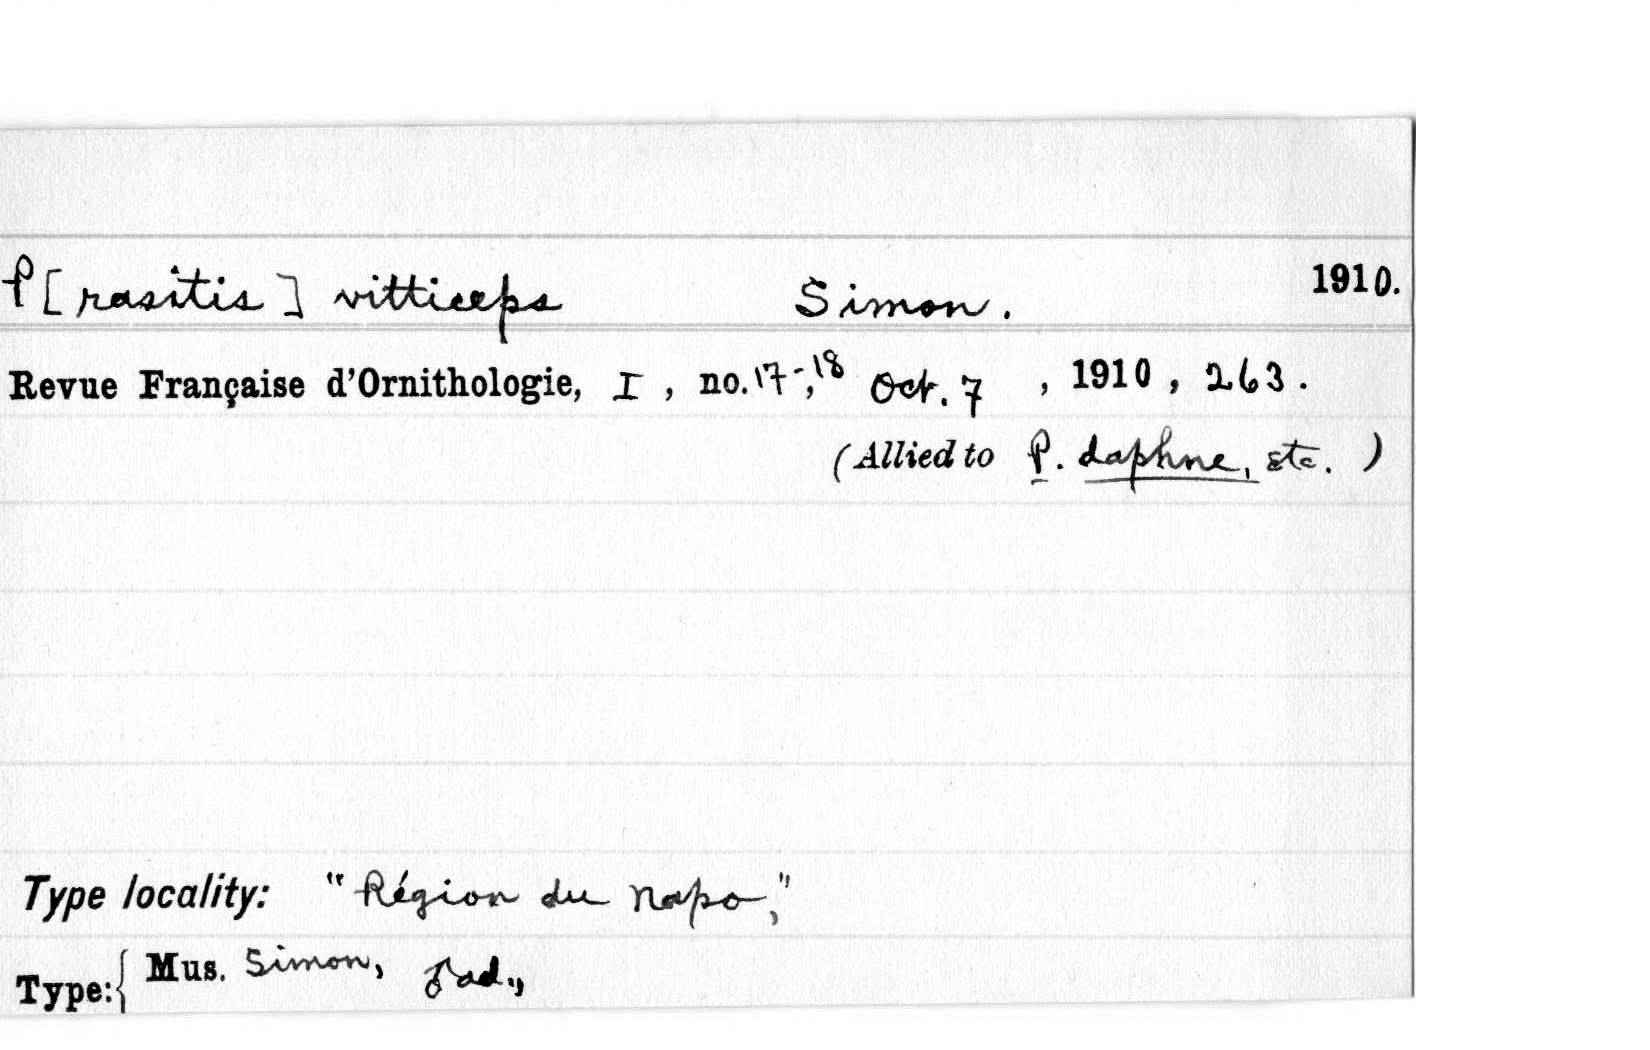 P[rasitis] vitticeps Simon. 1910.
Revue Française d'Ornithologie, I, no. 17-18, Oct. 7, 1910, 263.
(Allied to P. daphne, etc.)
Type locality: "Région du Napo,"
Type: { Mus. Simon, ♂ad.,